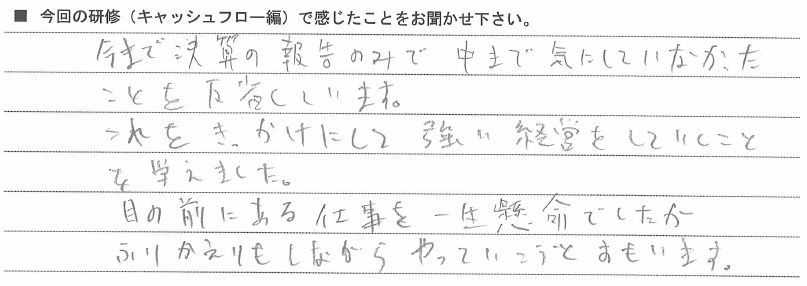 ■ 今回の研修（キャッシュフロー編）で感じたことをお聞かせ下さい。
今まで決算の報告のみで 中まで気にしていなかった
ことを反省しています。
これをきっかけにして 強い経営をしていくこと
を学えました。
目の前にある仕事を一生懸命でしたが
ふりかえりもしながらやっていこうとおもいます。